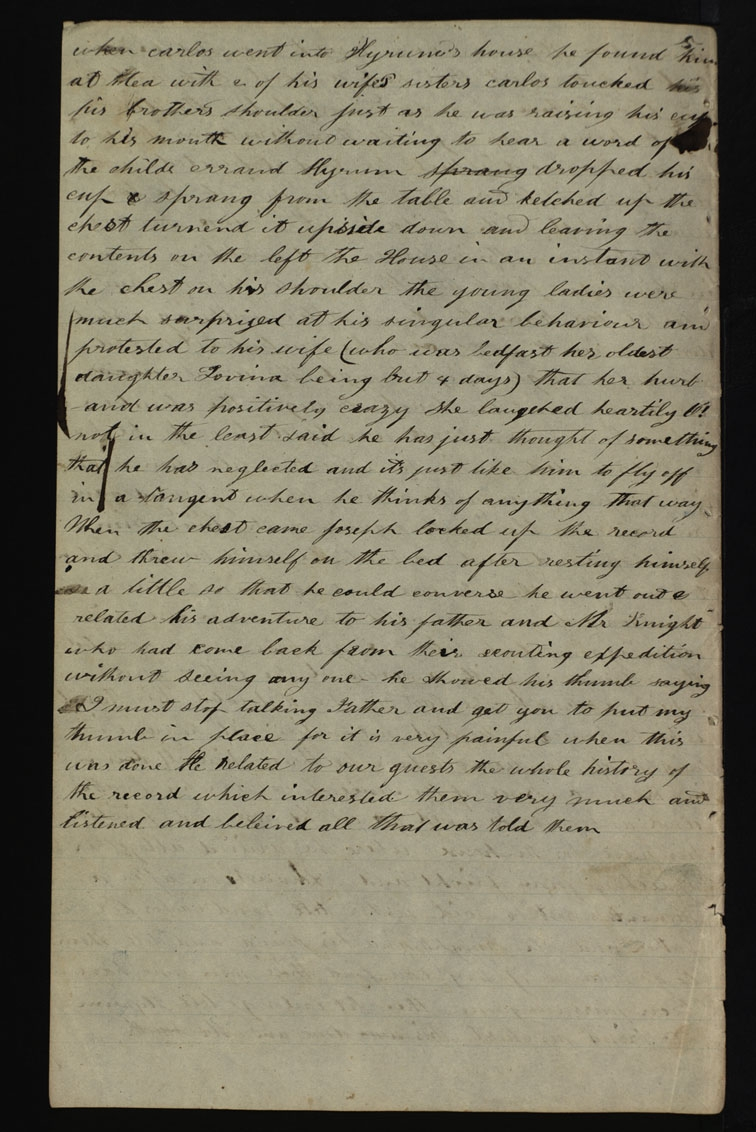 when carlos went into Hyrum's house he found him
at tea with 2 of his wifes sisters carlos touched his
his brothers shoulder just as he was raising his cup
to his mouth without waiting to hear a word of
the childs errand Hyrum sprang dropped his
cup & sprang from the table and ketched up the
chest turnend it upside down and leaving the
contents on the left the House in an instant with
the chest on his shoulder the young ladies were
much surprized at his singular behaviour and
protested to his wife (who was bedfast her oldest
daughter Lovina being but 4 days) that her husb
and was positively crazy she laughed heartily O!
not in the least said he has just thought of something
that he has neglected and its just like him to fly off
in a tangent when he thinks of anything that way
When the chest came Joseph locked up the record
and threw himself on the bed after resting himself
a little so that he could converse he went out &
related his adventure to his father and Mr Knight
who had come back from their scouting expedition
without seeing any one he showed his thumb saying
I must stop talking Father and get you to put my
thumb in place for it is very painful when this
was done He related to our guests the whole history of
the record which interested them very much and
listened and beleived all that was told them